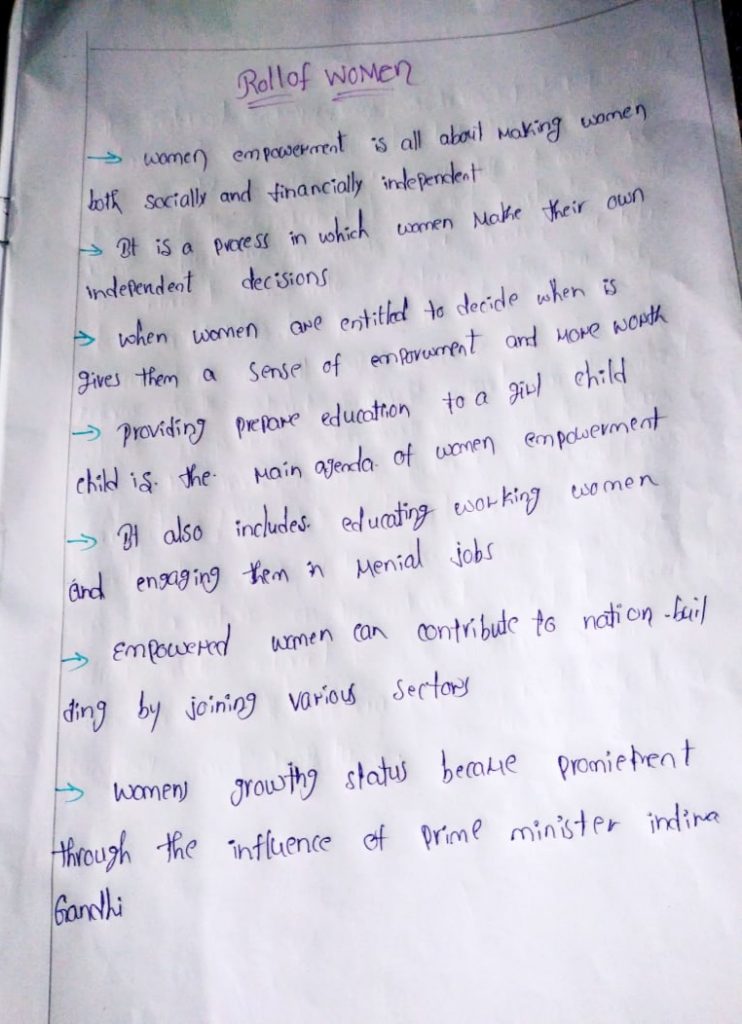 Roll of Women
→ women empowerment is all about Making women
both socially and financially independent
→ It is a process in which women Make their own
independent decisions
→ when women are entitled to decide when is
gives them a sense of emporwment and more worth
→ providing prepare education to a girl child
child is. the. Main agenda. of women empowerment
→ It also includes. educating working women
and engaging them in Menial jobs
→ Empowered women can contribute to nation-buil
ding by joining various sectors
→ womens growing status became promietrent
through the influence of prime minister indira
Gandhi